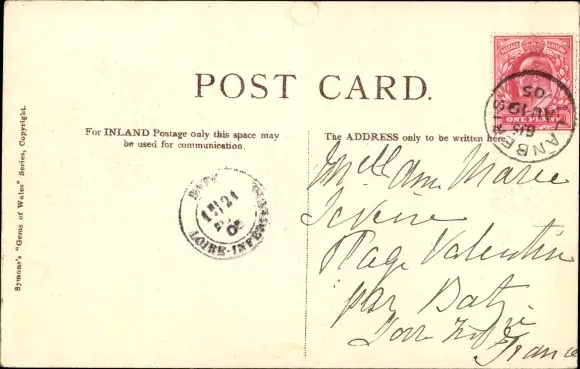 POST CARD.
For INLAND Postage only this space may
be used for communication.
The ADDRESS only to be written here.
Symons's "Gems of Wales" Series, Copyright.
POSTAGE REVENUE
ONE PENNY
LLANBERIS
AU 19
05
21
05
LOIRE-INFERE
Melle Anne Marie
Plage Valentin
par Batz
Loire Infre
France